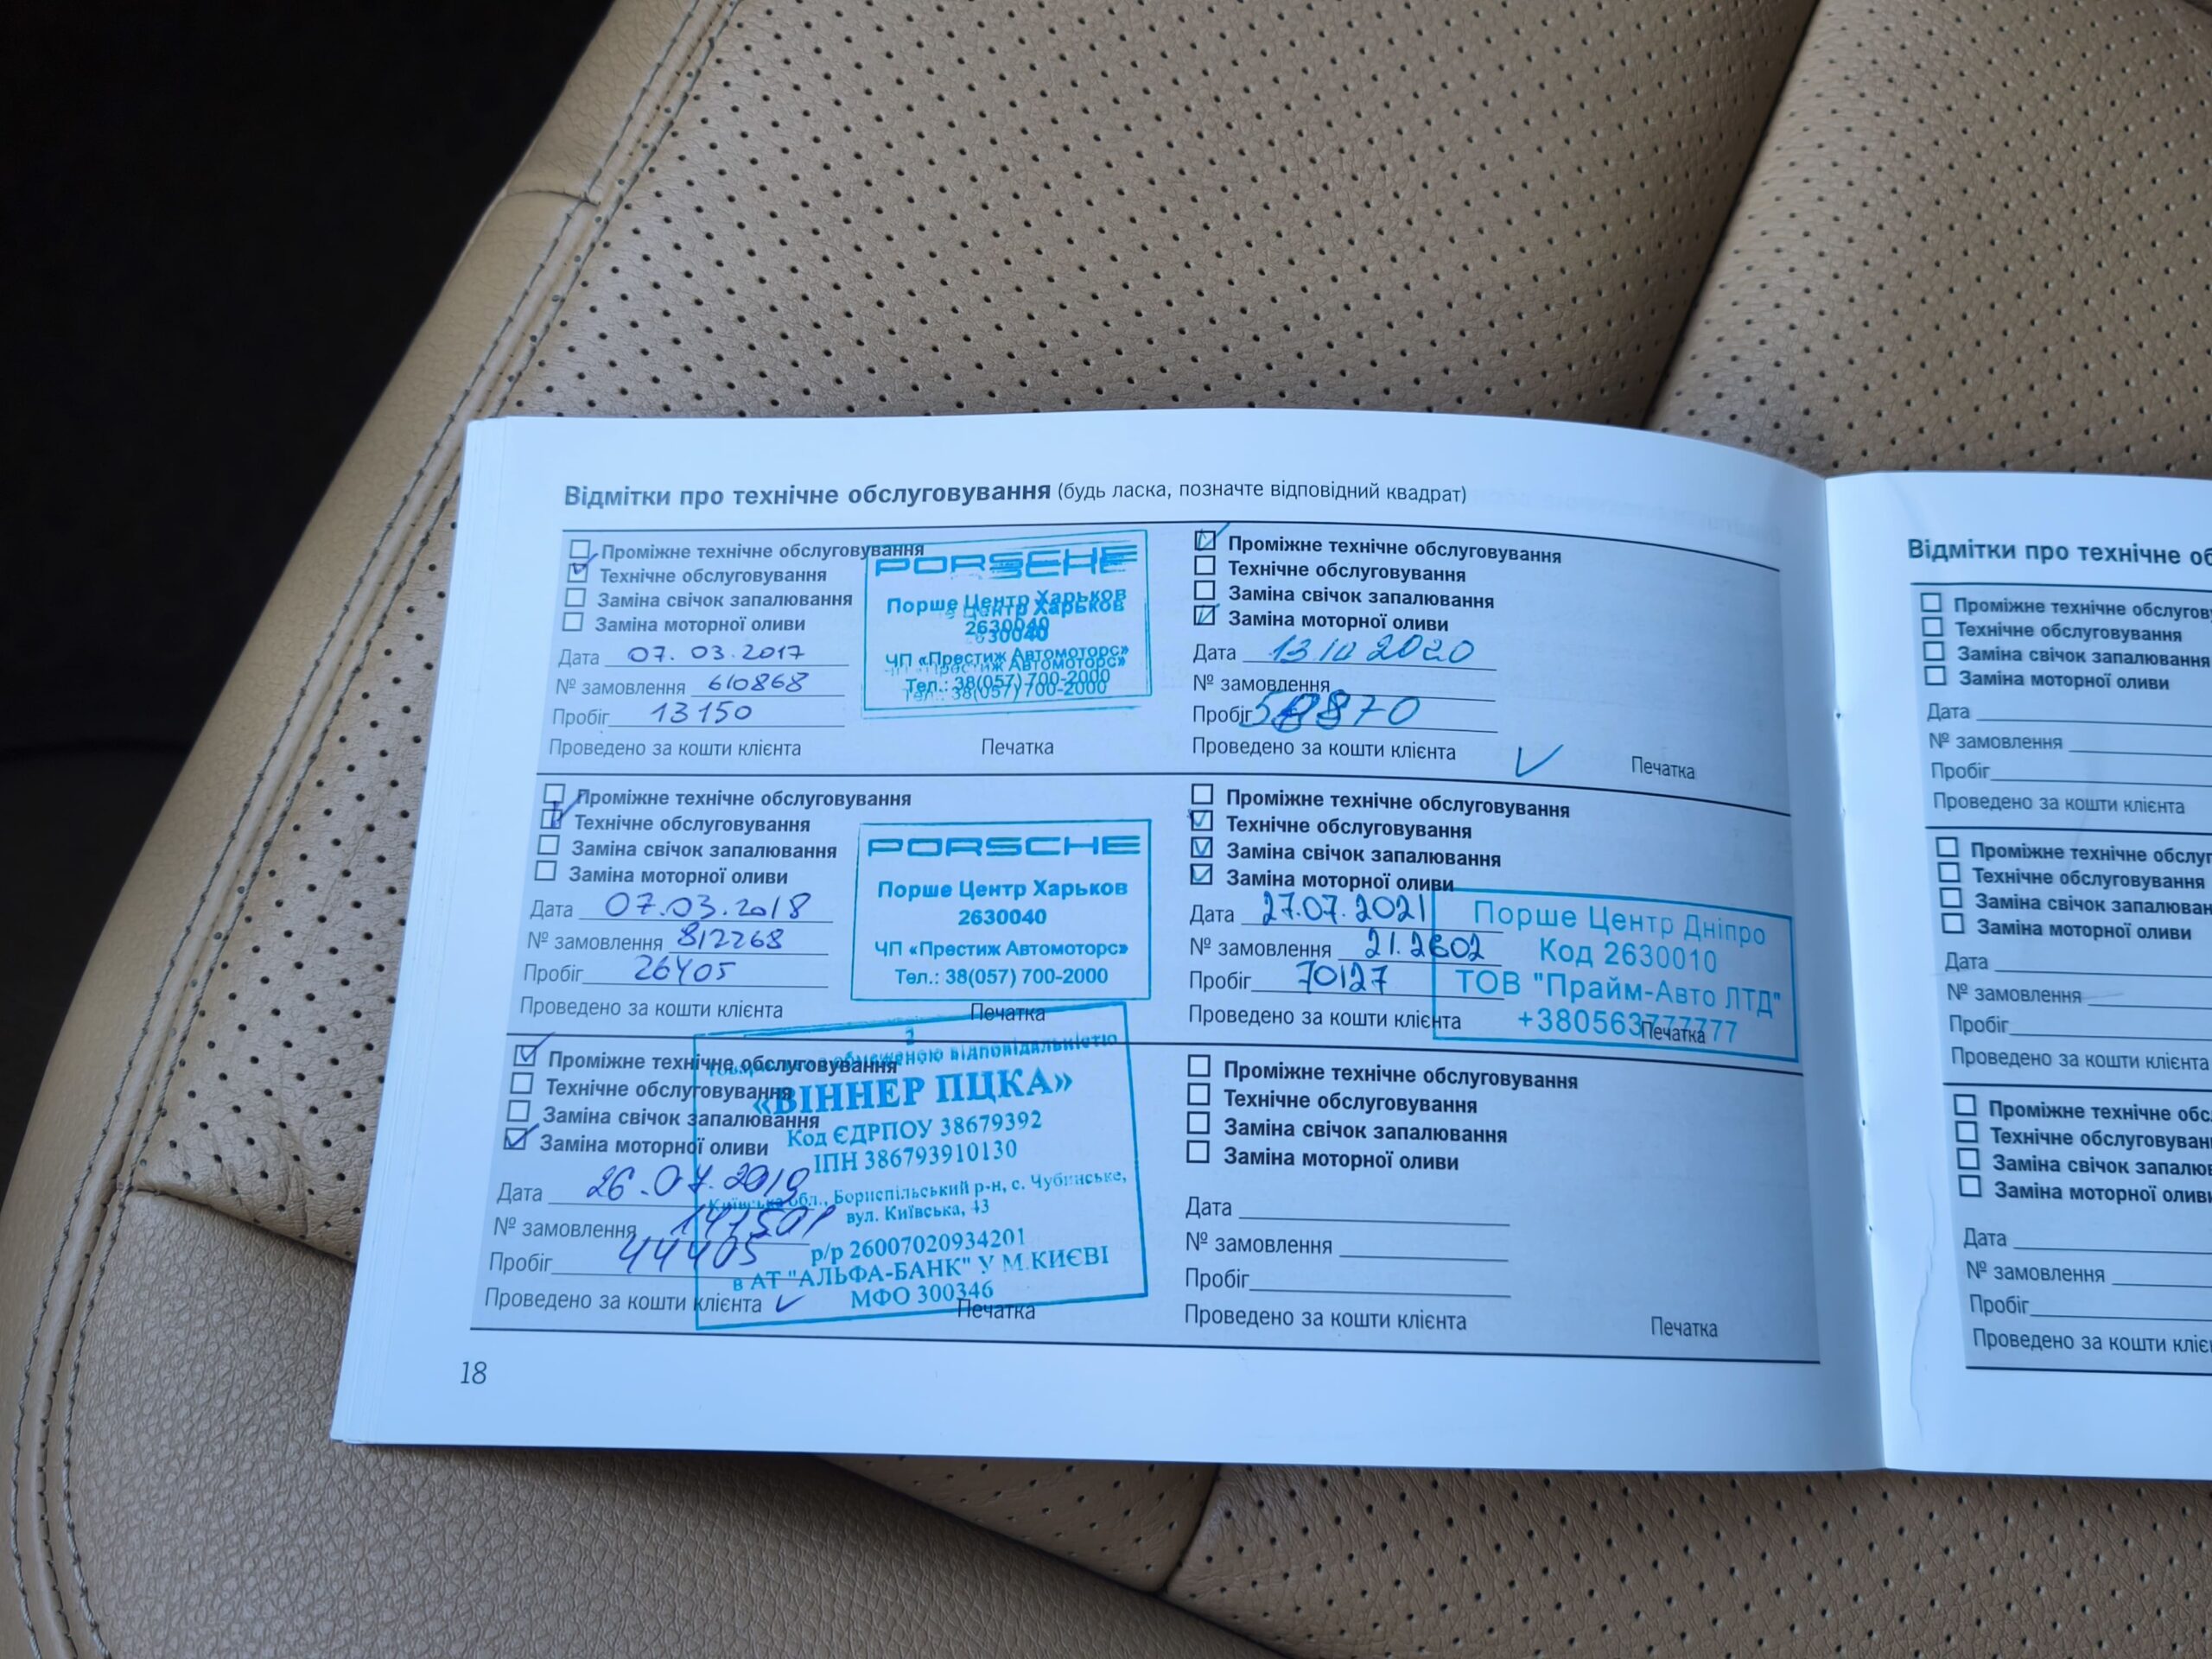 Відмітки про технічне обслуговування (будь ласка, позначте відповідний квадрат)
Проміжне технічне обслуговування
Технічне обслуговування
Заміна свічок запалювання
Заміна моторної оливи
Дата 07.03.2017
№ замовлення 610868
Пробіг 13150
Проведено за кошти клієнта
Печатка
PORSCHE
Порше Центр Харьков
2630040
ЧП «Престиж Автомоторс»
Тел.: 38(057) 700-2000
Проміжне технічне обслуговування
Технічне обслуговування
Заміна свічок запалювання
Заміна моторної оливи
Дата 07.03.2018
№ замовлення 812268
Пробіг 26405
Проведено за кошти клієнта
Печатка
PORSCHE
Порше Центр Харьков
2630040
ЧП «Престиж Автомоторс»
Тел.: 38(057) 700-2000
Проміжне технічне обслуговування
Технічне обслуговування
Заміна свічок запалювання
Заміна моторної оливи
Дата 26.07.2019
№ замовлення
Пробіг 44405
Проведено за кошти клієнта
Печатка
2
обмеженою відповідальністю
«ВІННЕР ПЦКА»
Код ЄДРПОУ 38679392
ІПН 386793910130
Київська обл., Бориспільський р-н, с. Чубинське,
вул. Київська, 43
р/р 26007020934201
в АТ "АЛЬФА-БАНК" У М.КИЄВІ
МФО 300346
Проміжне технічне обслуговування
Технічне обслуговування
Заміна свічок запалювання
Заміна моторної оливи
Дата 13 10 2020
№ замовлення
Пробіг
Проведено за кошти клієнта
Печатка
Проміжне технічне обслуговування
Технічне обслуговування
Заміна свічок запалювання
Заміна моторної оливи
Дата 27.07.2021
№ замовлення 21.2602
Пробіг 70127
Проведено за кошти клієнта
Печатка
Порше Центр Дніпро
Код 2630010
ТОВ "Прайм-Авто ЛТД"
+380563777777
Проміжне технічне обслуговування
Технічне обслуговування
Заміна свічок запалювання
Заміна моторної оливи
Дата
№ замовлення
Пробіг
Проведено за кошти клієнта
Печатка
18
Відмітки про технічне об
Проміжне технічне обслугов
Технічне обслуговування
Заміна свічок запалювання
Заміна моторної оливи
Дата
№ замовлення
Пробіг
Проведено за кошти клієнта
Проміжне технічне обслуг
Технічне обслуговування
Заміна свічок запалюван
Заміна моторної оливи
Дата
№ замовлення
Пробіг
Проведено за кошти клієнта
Проміжне технічне обс
Технічне обслуговуван
Заміна свічок запалю
Заміна моторної оливи
Дата
№ замовлення
Пробіг
Проведено за кошти кліє